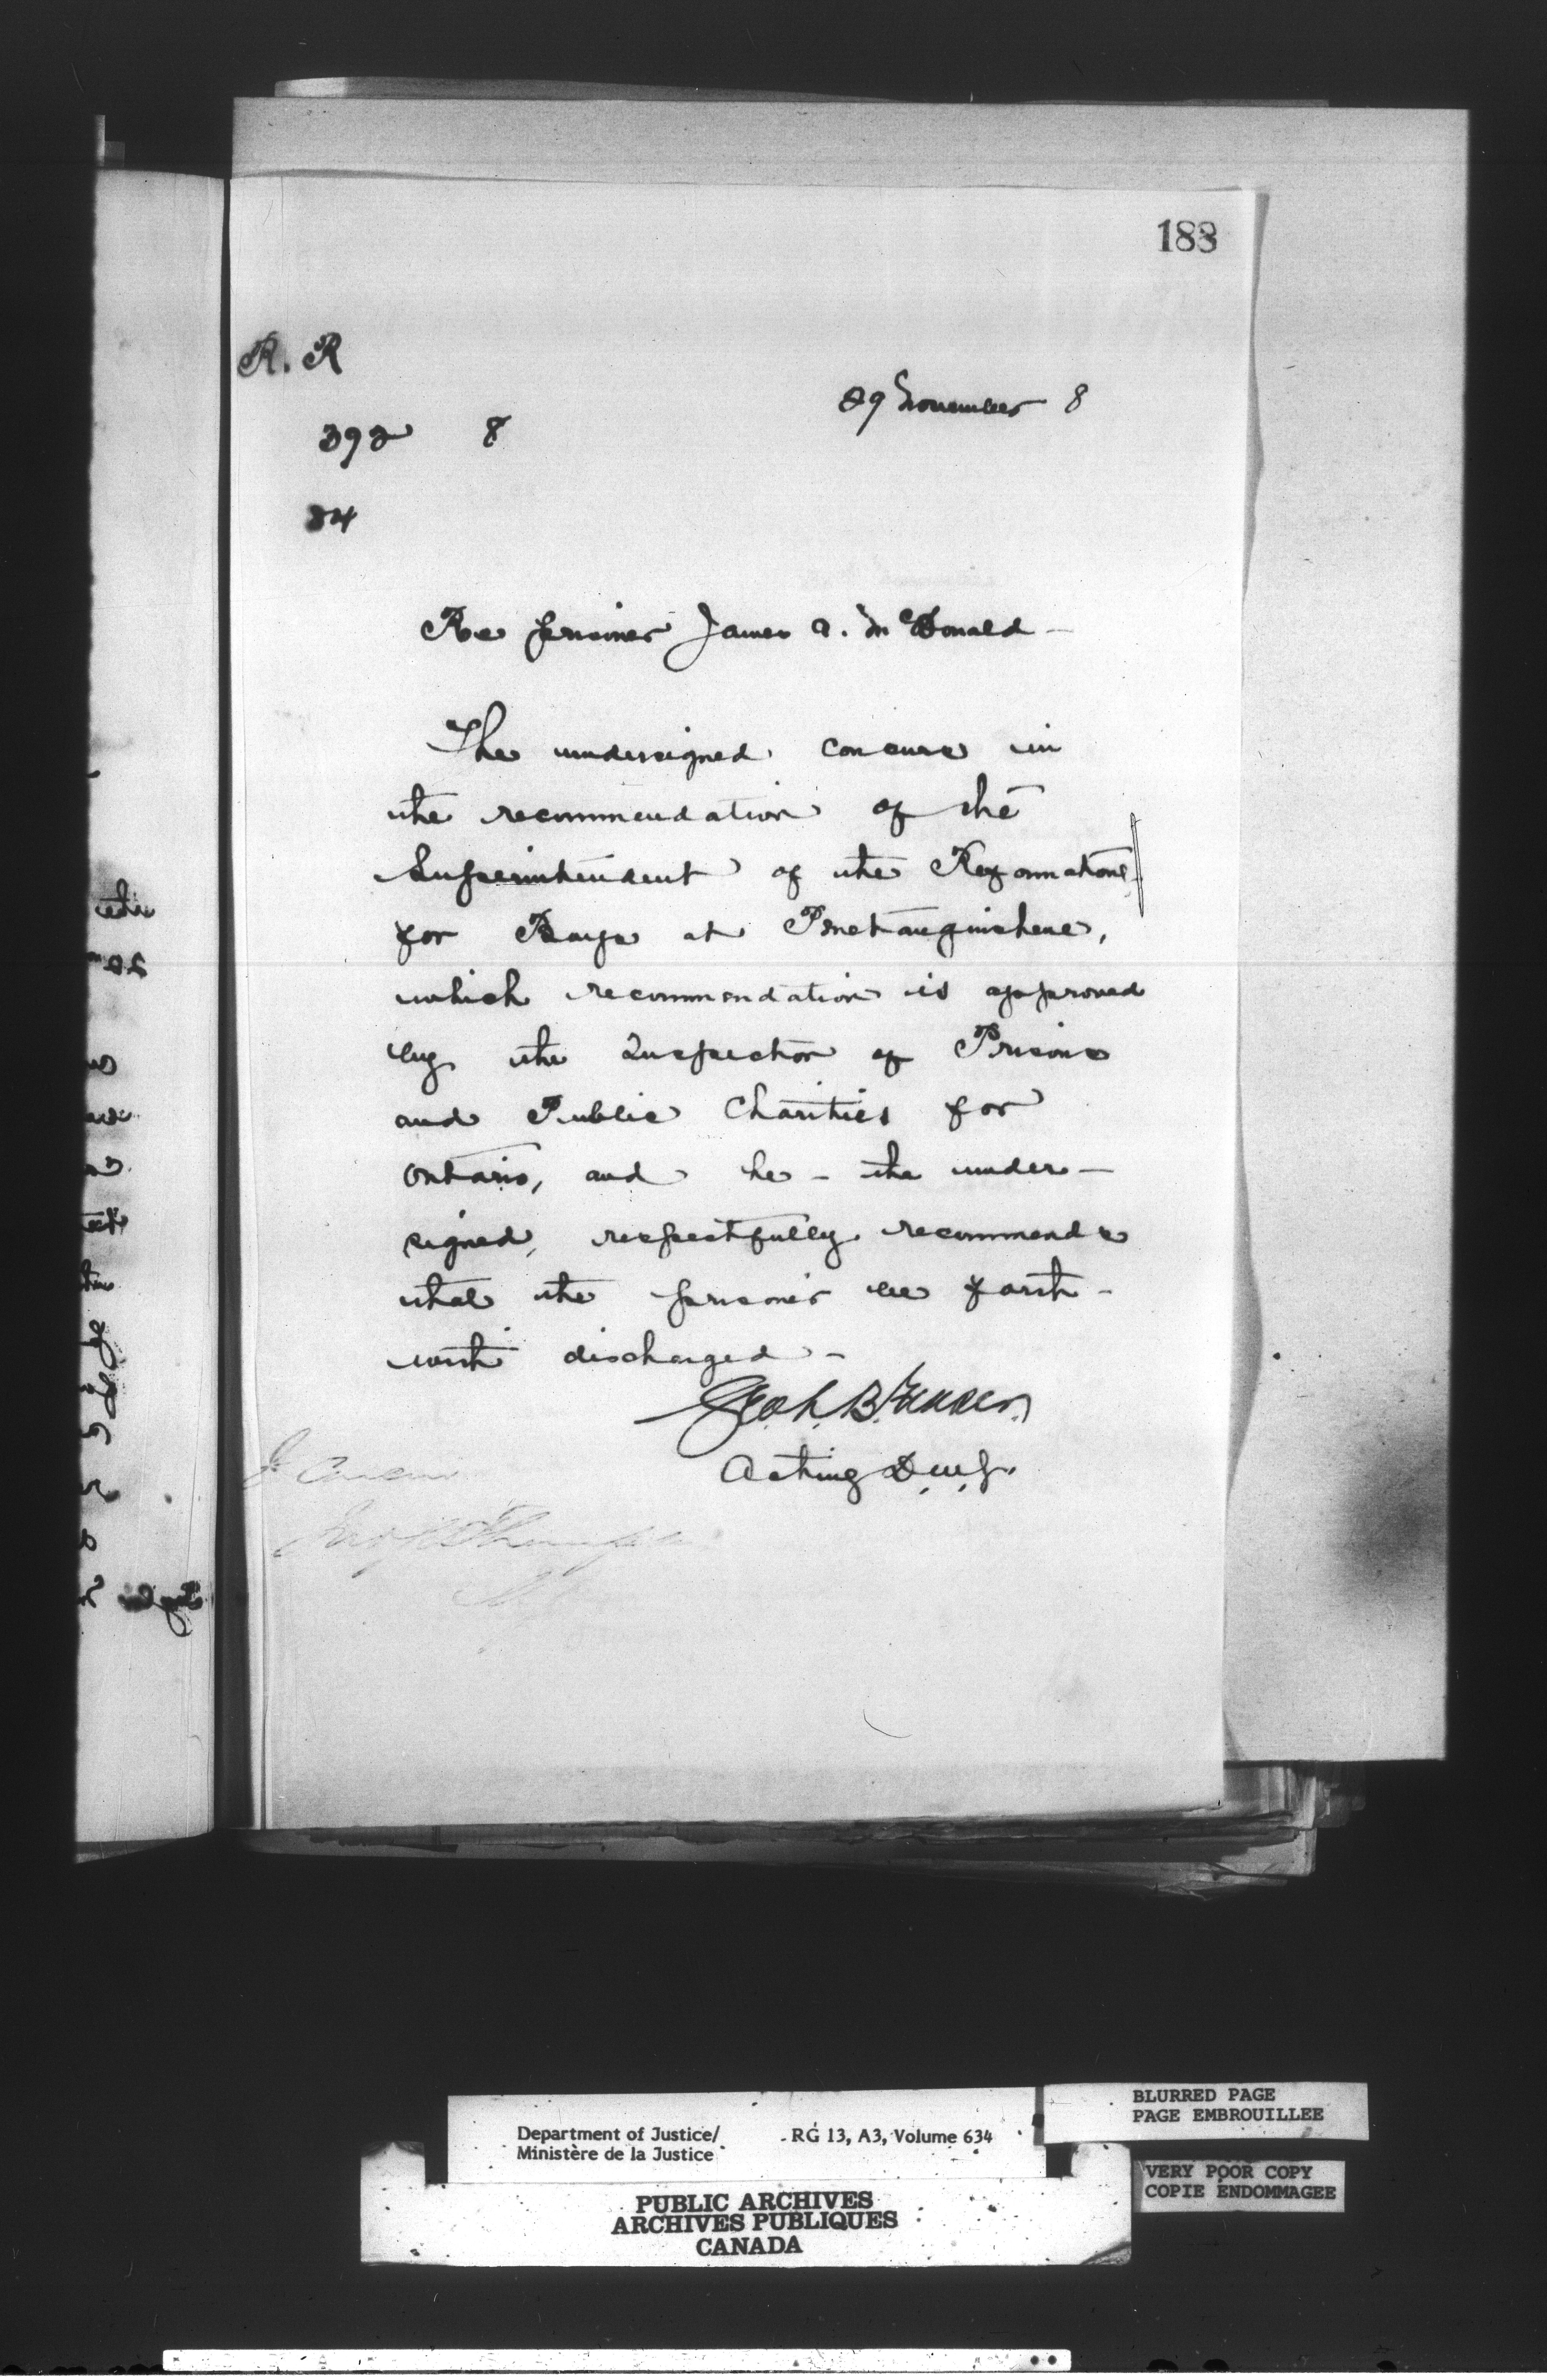 188
R. R
29 November 8
392 8
34
Re prisoner James A. McDonald -
The undersigned concurs in
the recommendation of the
Superintendent of the Reformatory
for Boys at Penetanguishene,
which recommendation is approved
by the Inspector of Prisons
and Public Charities for
Ontario, and he - the under-
signed, respectfully recommends
that the prisoner be forth-
with discharged -
Acting D.M.J.
I concur
Jno S D Thompson
BLURRED PAGE
PAGE EMBROUILLEE
Department of Justice/ RG 13, A3, Volume 634
Ministère de la Justice
VERY POOR COPY
COPIE ENDOMMAGEE
PUBLIC ARCHIVES
ARCHIVES PUBLIQUES
CANADA